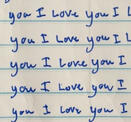 you I Love you I L
you I Love you I L
you I love you I
you I Love you I
you I love you I